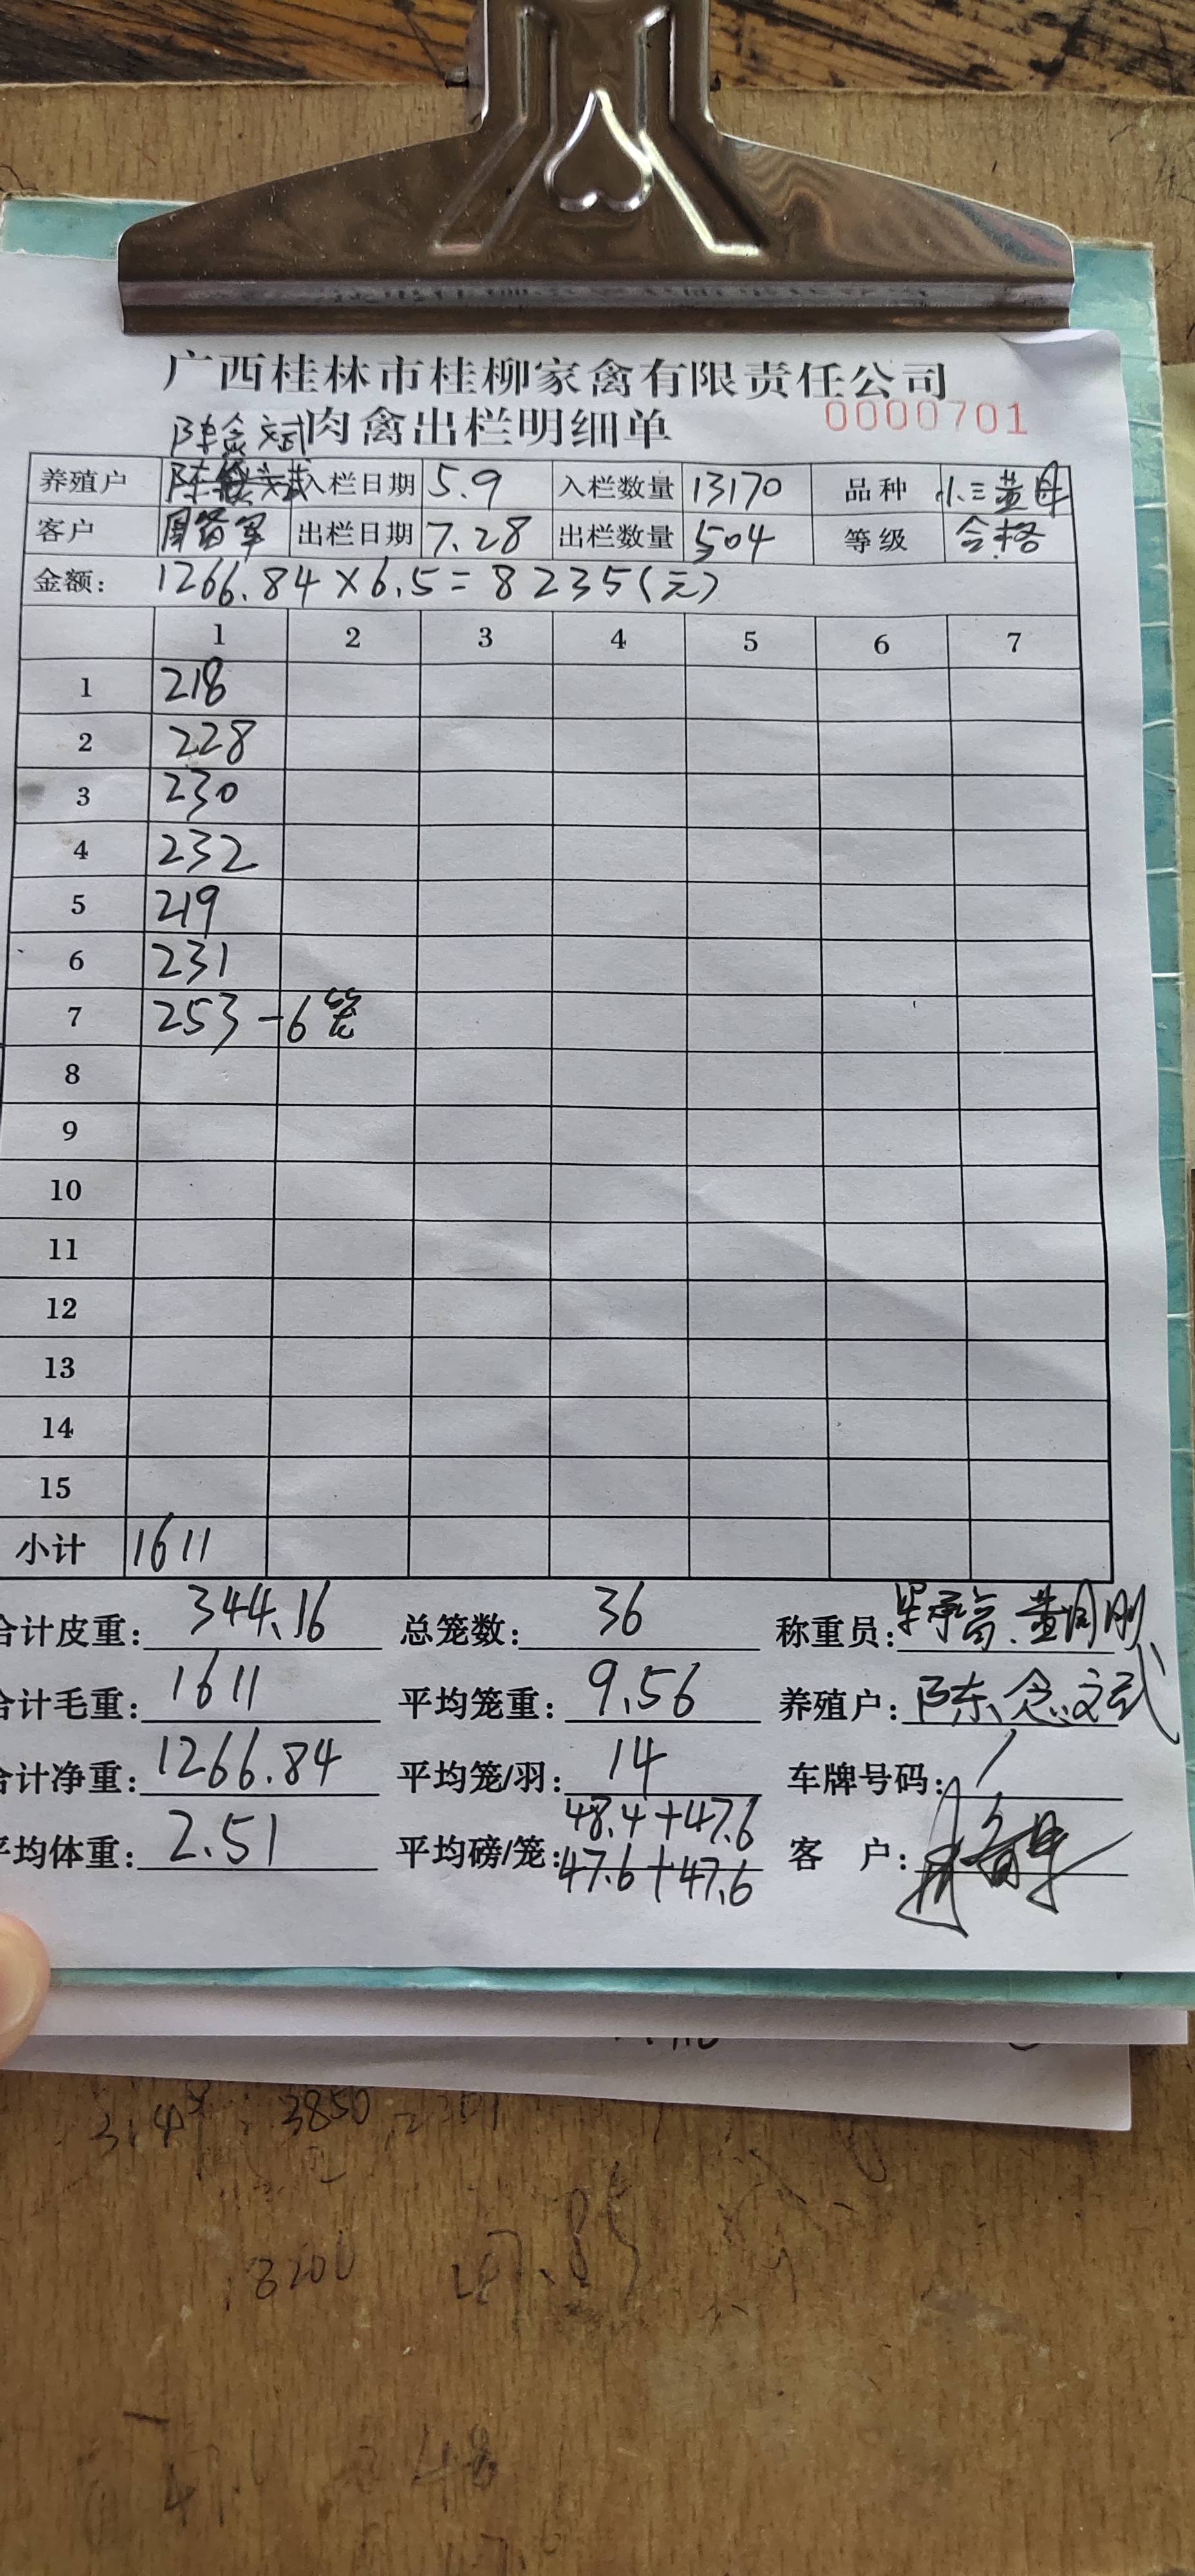 广西桂林市桂柳家禽有限责任公司
肉禽出栏明细单
0000701
陈念斌
养殖户 入栏日期 5.9 入栏数量 13170 品种 小三黄母
客户 出栏日期 7.28 出栏数量 504 等级 合格
金额: 1266.84×6.5=8235(元)
1 2 3 4 5 6 7
1 218
2 228
3 230
4 232
5 219
6 231
7 253-6笼
8
9
10
11
12
13
14
15
小计 1611
合计皮重: 344.16 总笼数: 36 称重员:
合计毛重: 1611 平均笼重: 9.56 养殖户: 陈念斌
合计净重: 1266.84 平均笼/羽: 14 车牌号码: /
48.4+47.6
平均体重: 2.51 平均磅/笼: 47.6+47.6 客 户:
3850
8200
48